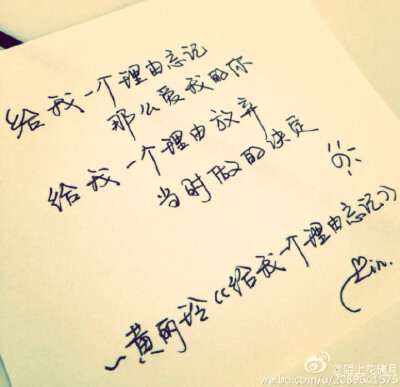 给我一个理由忘记
那么爱我的你
给我一个理由放弃
当时做的决定
～黄丽玲《给我一个理由忘记》
Lin.
@陌上花满月